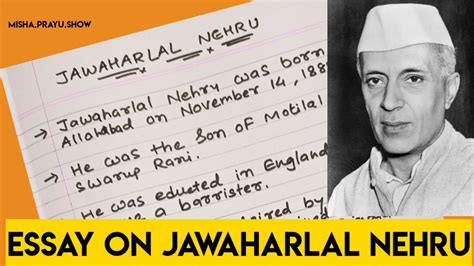 MISHA.PRAYU.SHOW
JAWAHARLAL NEHRU
→ Jawaharlal Nehru was born
Allahabad on November 14, 188
→ He was the Son of Motilal
Swarup Rani.
→ He was educted in England
a barrister.
by
ESSAY ON JAWAHARLAL NEHRU